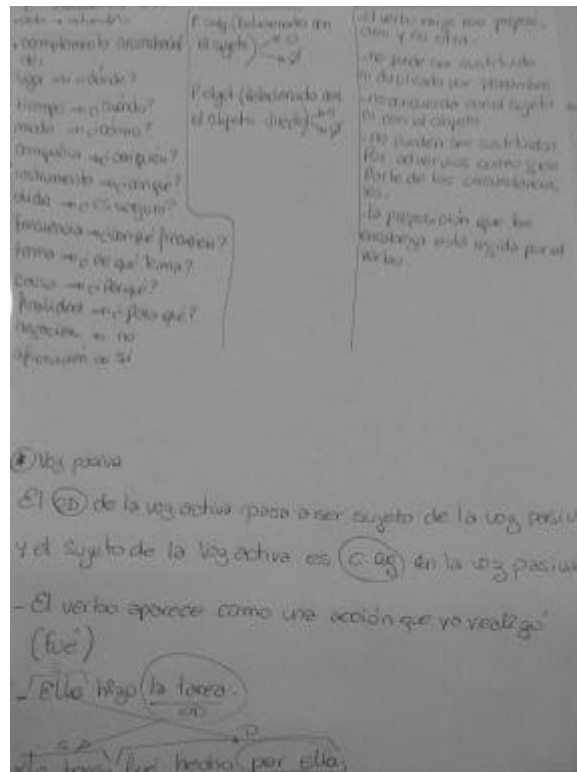 complemento circunstancial
de:
lugar → ¿dónde?
tiempo → ¿cuándo?
modo → ¿cómo?
compañía → ¿con quién?
instrumento → ¿con qué?
duda → ¿es seguro?
frecuencia → ¿con qué frecuencia?
forma → ¿de qué forma?
causa → ¿Porqué?
finalidad → ¿Para qué?
negación → no
afirmación → sí
(Relacionado con
el sujeto)
(Relacionado con
el objeto directo)
-El verbo exige una preposi-
ción y no otra.
-no puede ser sustituido
ni duplicado por pronombres
-no concuerda con el sujeto
ni con el objeto
-no pueden ser sustituidos
por adverbios como
Parte de los
-la preposición que los
encabeza está regida por el
verbo.
* Voz pasiva
El CD de la voz activa pasa a ser sujeto de la voz
y el sujeto de la voz activa es C. ag en la voz
- El verbo aparece como una acción que ya realizó
(fué)
- Ella hizo la tarea.
CD
fue hecha por ella.